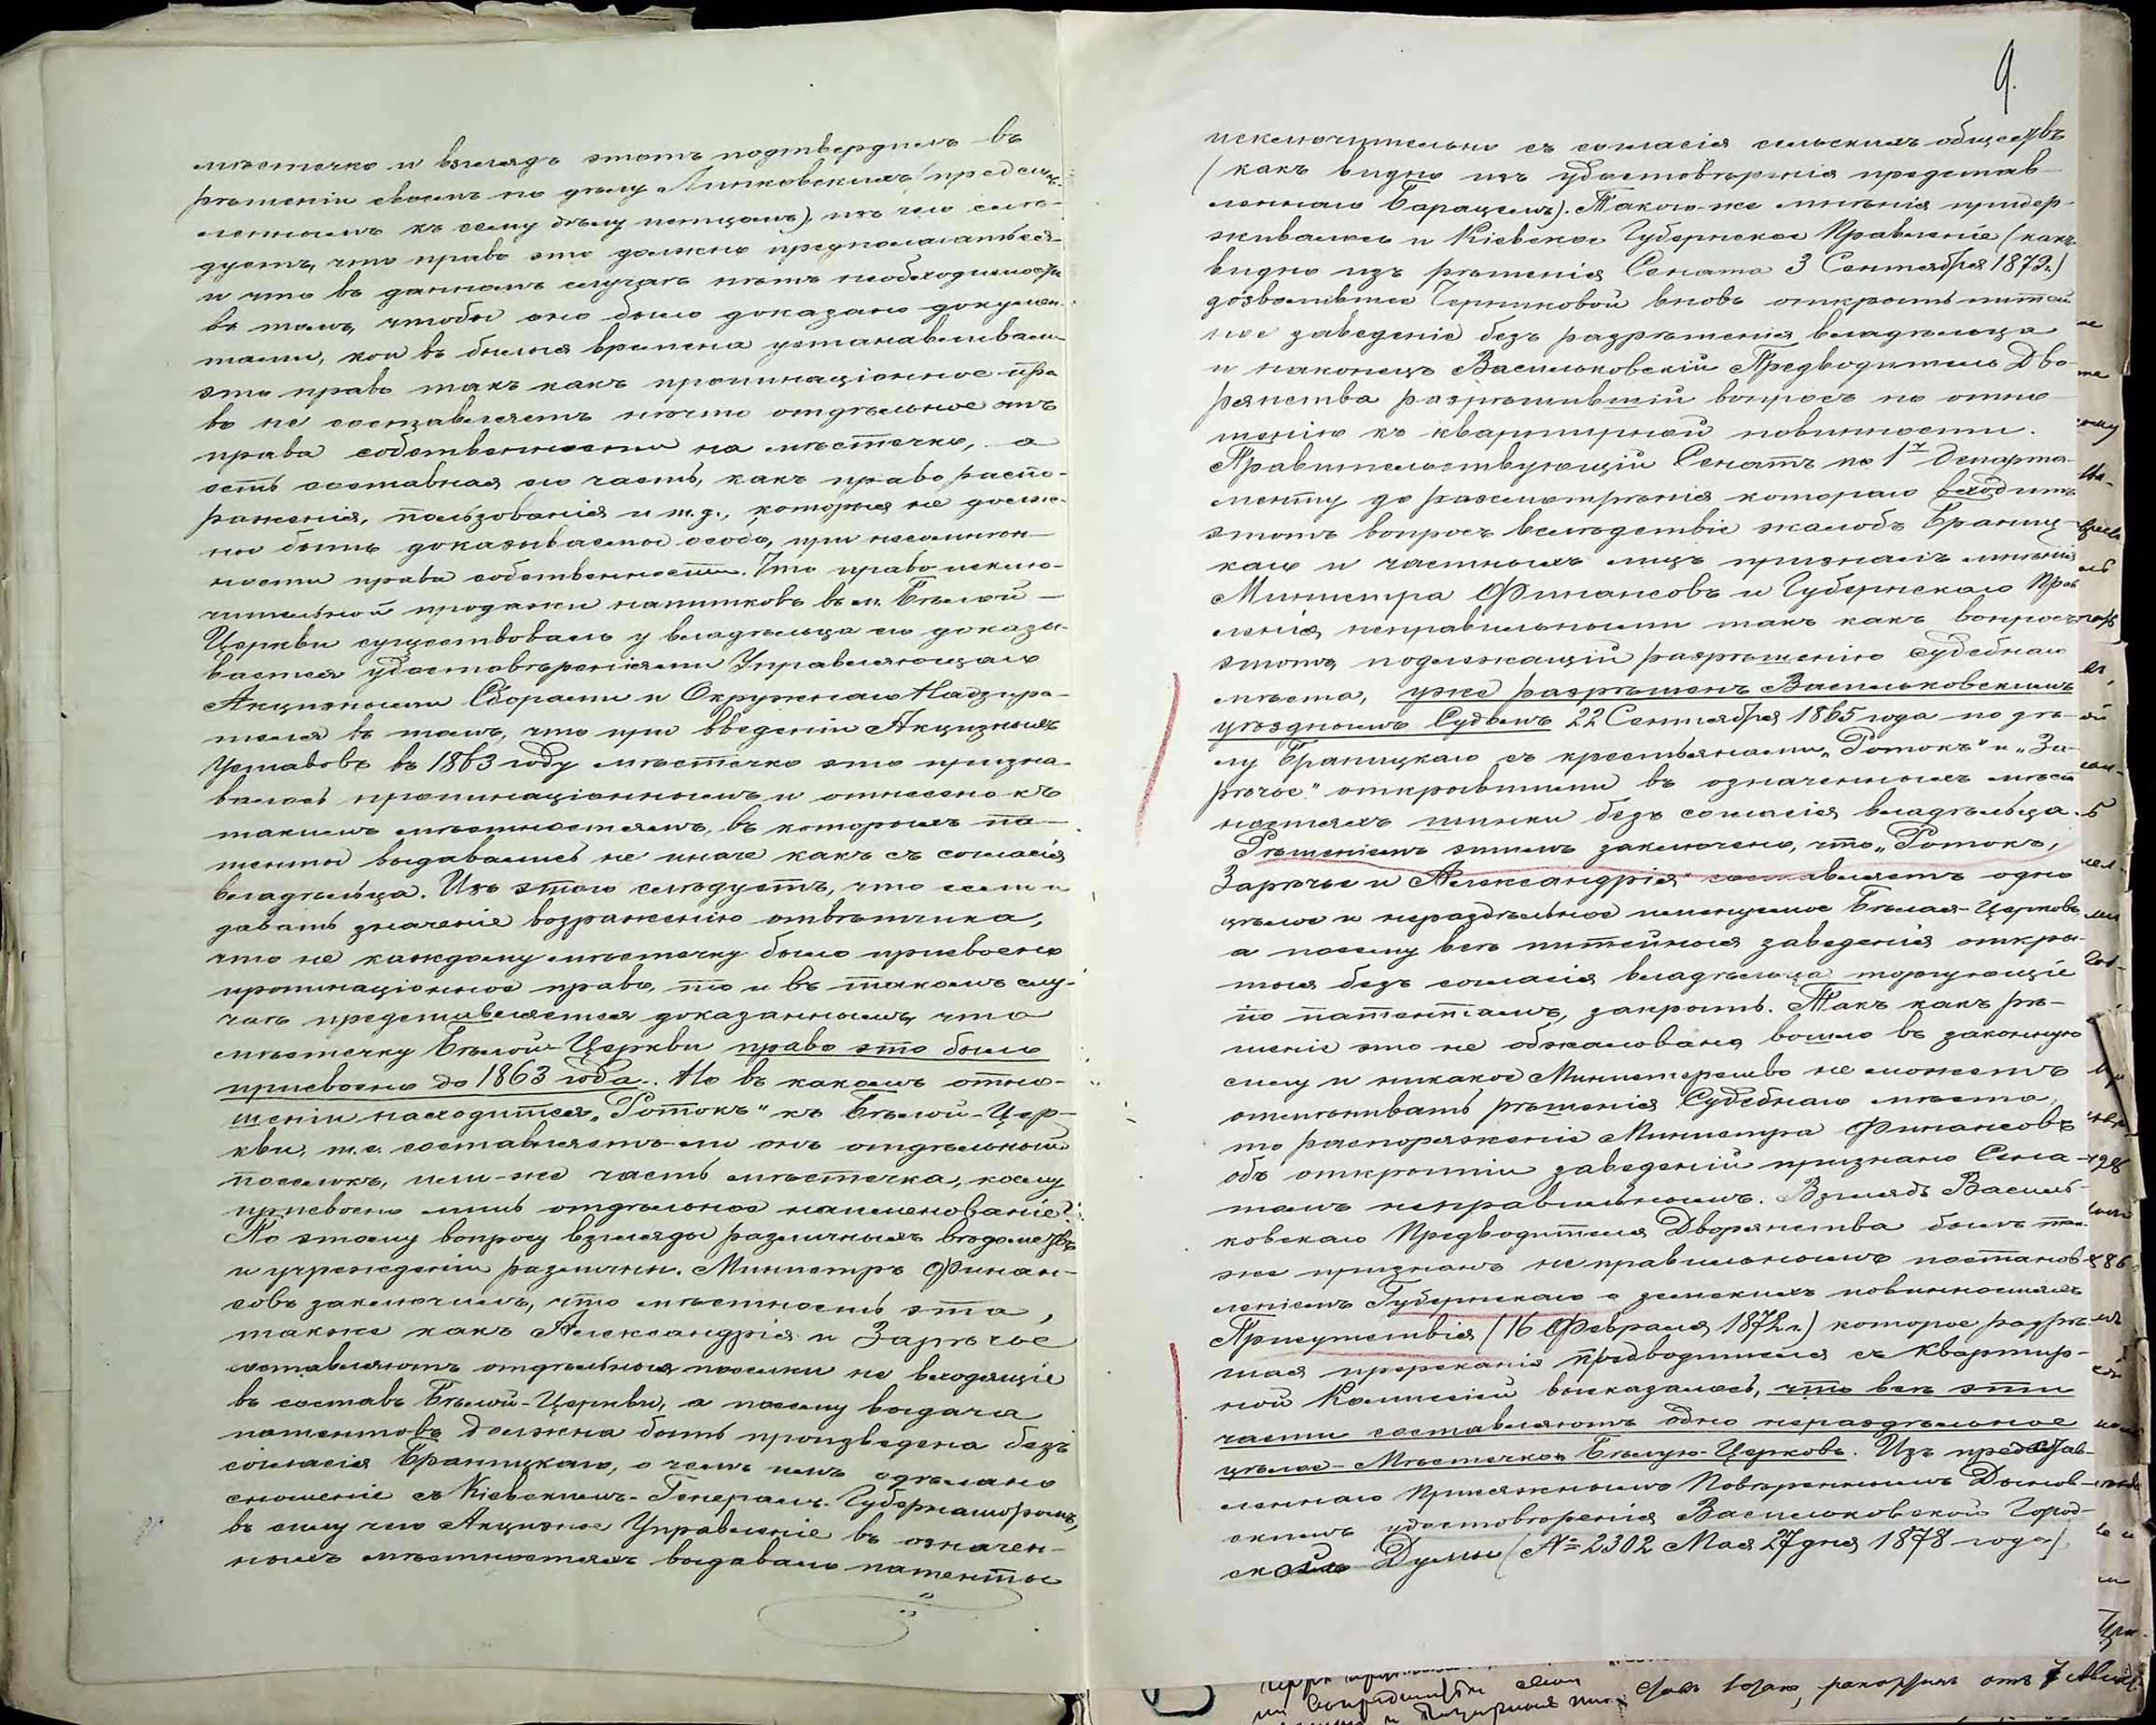 мѣстечко и взглядъ этотъ подтвердилъ въ
рѣшеніи своемъ по дѣлу Липковскихъ (представ-
леннымъ къ сему дѣлу истцомъ), изъ чего слѣ-
дуетъ, что право это должно предполагаться
и что въ данномъ случаѣ нѣтъ необходимости
въ томъ, чтобы оно было доказано докумен-
тами, кои въ былыя времена устанавливали
это право такъ какъ пропинаціонное пра-
во не составляетъ нѣчто отдѣльное отъ
права собственности на мѣстечко, а
есть составная его часть, какъ право распо-
ряженія, пользованія и т.д., которыя не долж-
ны быть доказываемы особо, при несомнѣн-
ности права собственности. Что право исклю-
чительной продажи напитковъ въ м. Бѣлой-
Церкви существовало у владѣльца его доказы-
вается удостовѣреніями Управляющаго
Акцизными Сборами и Окружнаго Надзира-
теля въ томъ, что при введеніи Акцизныхъ
Уставовъ въ 1863 году мѣстечко это призна-
валось пропинаціоннымъ и отнесено къ
такимъ мѣстностямъ, въ которыхъ па-
тенты выдавались не иначе какъ съ согласія
владѣльца. Изъ этого слѣдуетъ, что если и
давать значеніе возраженію отвѣтчика,
что не каждому мѣстечку было присвоено
пропинаціонное право, то и въ такомъ слу-
чаѣ представляется доказаннымъ, что
мѣстечку Бѣлой-Церкви право это было
присвоено до 1863 года. Но въ какомъ отно-
шеніи находится „Ротокъ" къ Бѣлой-Цер-
кви, т.е. составляетъ-ли онъ отдѣльный
поселокъ, или-же часть мѣстечка, коему
присвоено лишь отдѣльное наименованіе?
По этому вопросу взгляды различныхъ вѣдомствъ
и учрежденій различны. Министръ Финан-
совъ заключилъ, что мѣстность эта,
также какъ Александрія и Зарѣчье
составляютъ отдѣльныя поселки не входящіе
въ составъ Бѣлой-Церкви, а посему выдача
патентовъ должна быть произведена безъ
согласія Браницкаго, о чемъ имъ сдѣлано
сношеніе съ Кіевскимъ-Генералъ-Губернаторомъ,
въ силу чего Акцизное Управленіе въ означен-
ныхъ мѣстностяхъ выдавало патенты
9.
исключительно съ согласія сельскихъ обществъ
(какъ видно изъ удостовѣренія представ-
леннаго Барацемъ). Такого-же мнѣнія придер-
живалось и Кіевское Губернское Правленіе (какъ
видно изъ рѣшенія Сената 3 Сентября 1873 г.)
дозволившее Черниковой вновь открыть питей-
ное заведеніе безъ разрѣшенія владѣльца
и наконецъ Васильковскій Предводитель Дво-
рянства разрѣшившій вопросъ по отно-
шенію къ квартирной повинности.
Правительствующій Сенатъ по 1му Департа-
менту до разсмотрѣнія котораго восходилъ
этотъ вопросъ вслѣдствіе жалобъ Браниц-
каго и частныхъ лицъ призналъ мнѣнія
Министра Финансовъ и Губернскаго Прав-
ленія, неправильными такъ какъ вопросъ
этотъ, подлежащій разрѣшенію судебнаго
мѣста, уже разрѣшенъ Васильковскимъ
уѣзднымъ Судомъ 22 Сентября 1865 года по дѣ-
лу Браницкаго съ крестьянами „Ротокъ" и „За-
рѣчье" открывшими въ означенныхъ мѣст-
ностяхъ шинки безъ согласія владѣльца.
Рѣшеніемъ этимъ заключено, что „Ротокъ,
Зарѣчье и Александрія" составляетъ одно
цѣлое и нераздѣльное именуемое Бѣлая-Церковь,
а посему всѣ питейныя заведенія откры-
тыя безъ согласія владѣльца торгующіе
по патентамъ, закрыть. Такъ какъ рѣ-
шеніе это не обжаловано, вошло въ законную
силу и никакое Министерство не можетъ
отмѣнивать рѣшенія Судебнаго мѣста,
то распоряженіе Министра Финансовъ
объ открытіи заведеній признано Сена-
томъ неправильнымъ. Взглядъ Василь-
ковскаго Предводителя Дворянства былъ так-
же признанъ неправильнымъ постанов-
леніемъ Губернскаго о земскихъ повинностяхъ
Присутствія (16 Февраля 1872 г.) которое разрѣ-
шая пререканія предводителя съ Квартир-
ной Комиссіей высказалось, что всѣ эти
части составляютъ одно нераздѣльное
цѣлое-Мѣстечко Бѣлую-Церковь. Изъ представ-
леннаго Присяжнымъ Повѣреннымъ Дынов-
скимъ удостовѣренія Васильковской Город-
ской Думы (№ 2302 Мая 27 дня 1878 года)